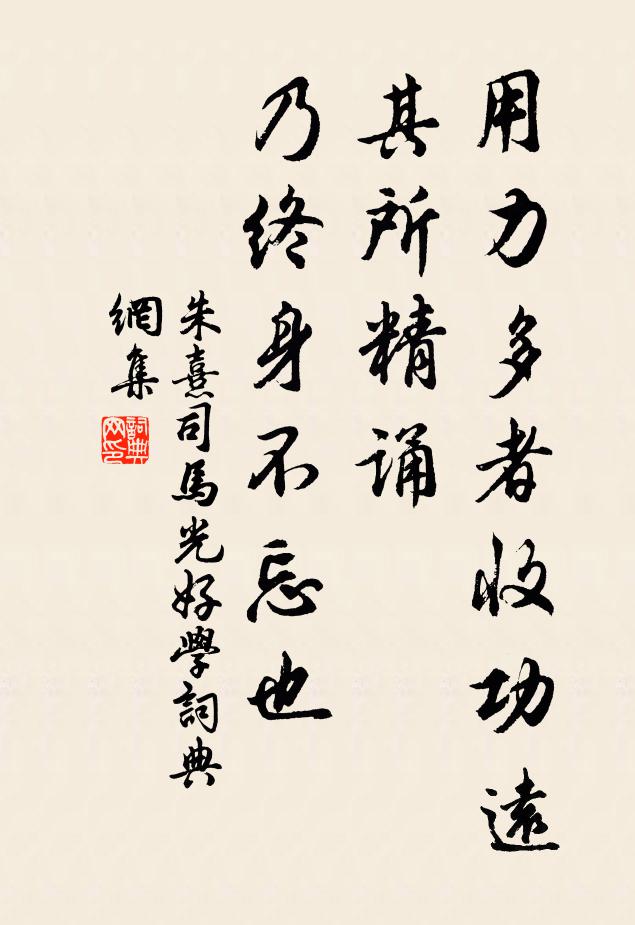 用力多者收功遠
其所精誦
乃終身不忘也
朱熹司馬光好學詞典
網集
詞典
网印